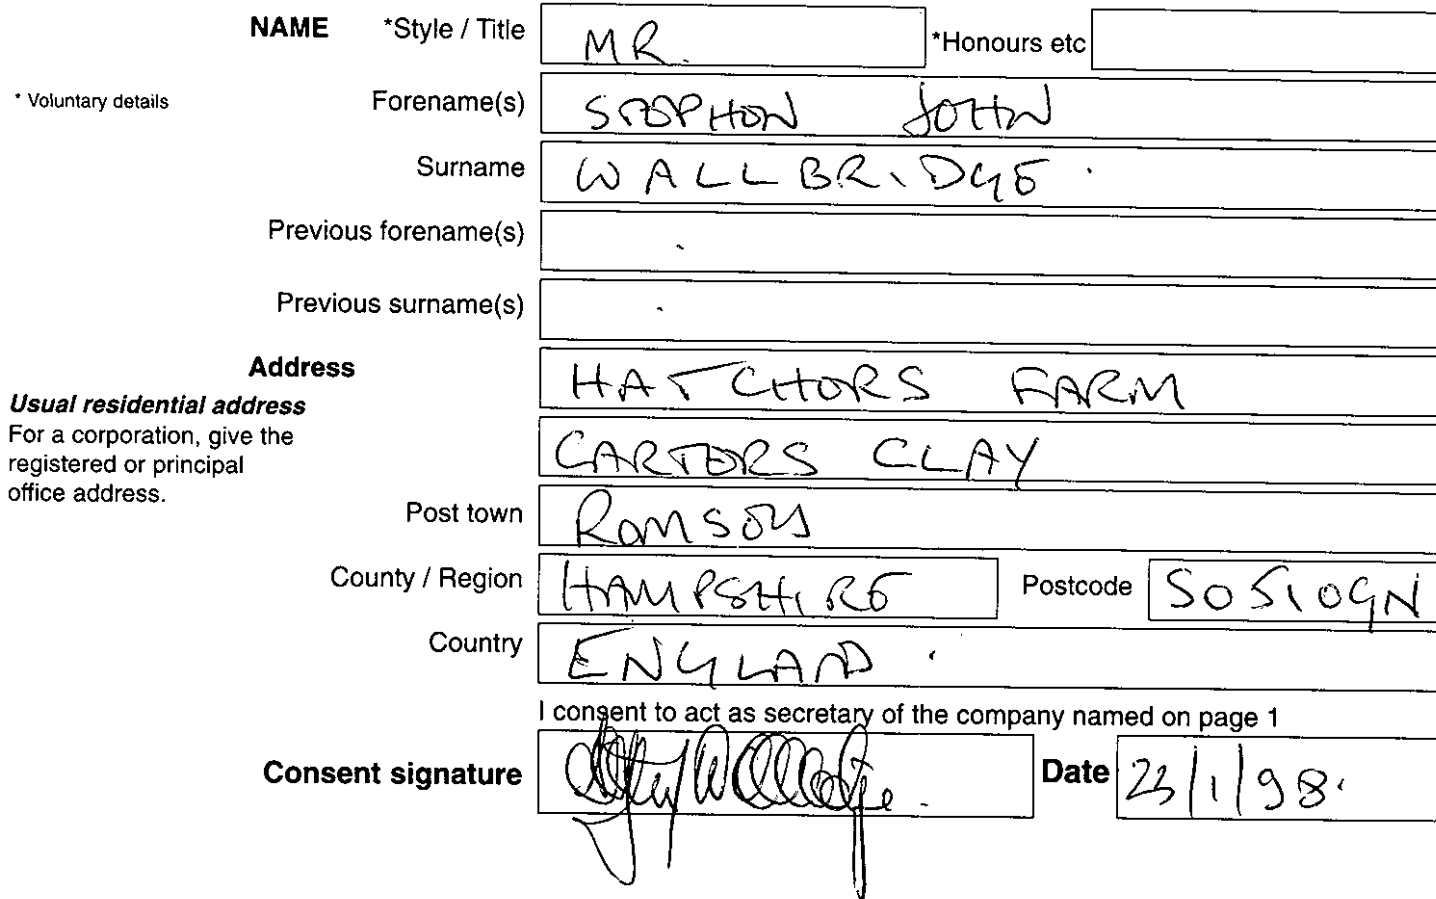 NAME *Style / Title MR. *Honours etc
* Voluntary details Forename(s) STEPHEN JOHN
Surname WALLBRIDGE.
Previous forename(s)
Previous surname(s)
Address HATCHERS FARM
Usual residential address
For a corporation, give the CARTERS CLAY
registered or principal
office address.
Post town ROMSEY
County / Region HAMPSHIRE Postcode SO51 0GN
Country ENGLAND.
I consent to act as secretary of the company named on page 1
Consent signature Date 23/1/98.